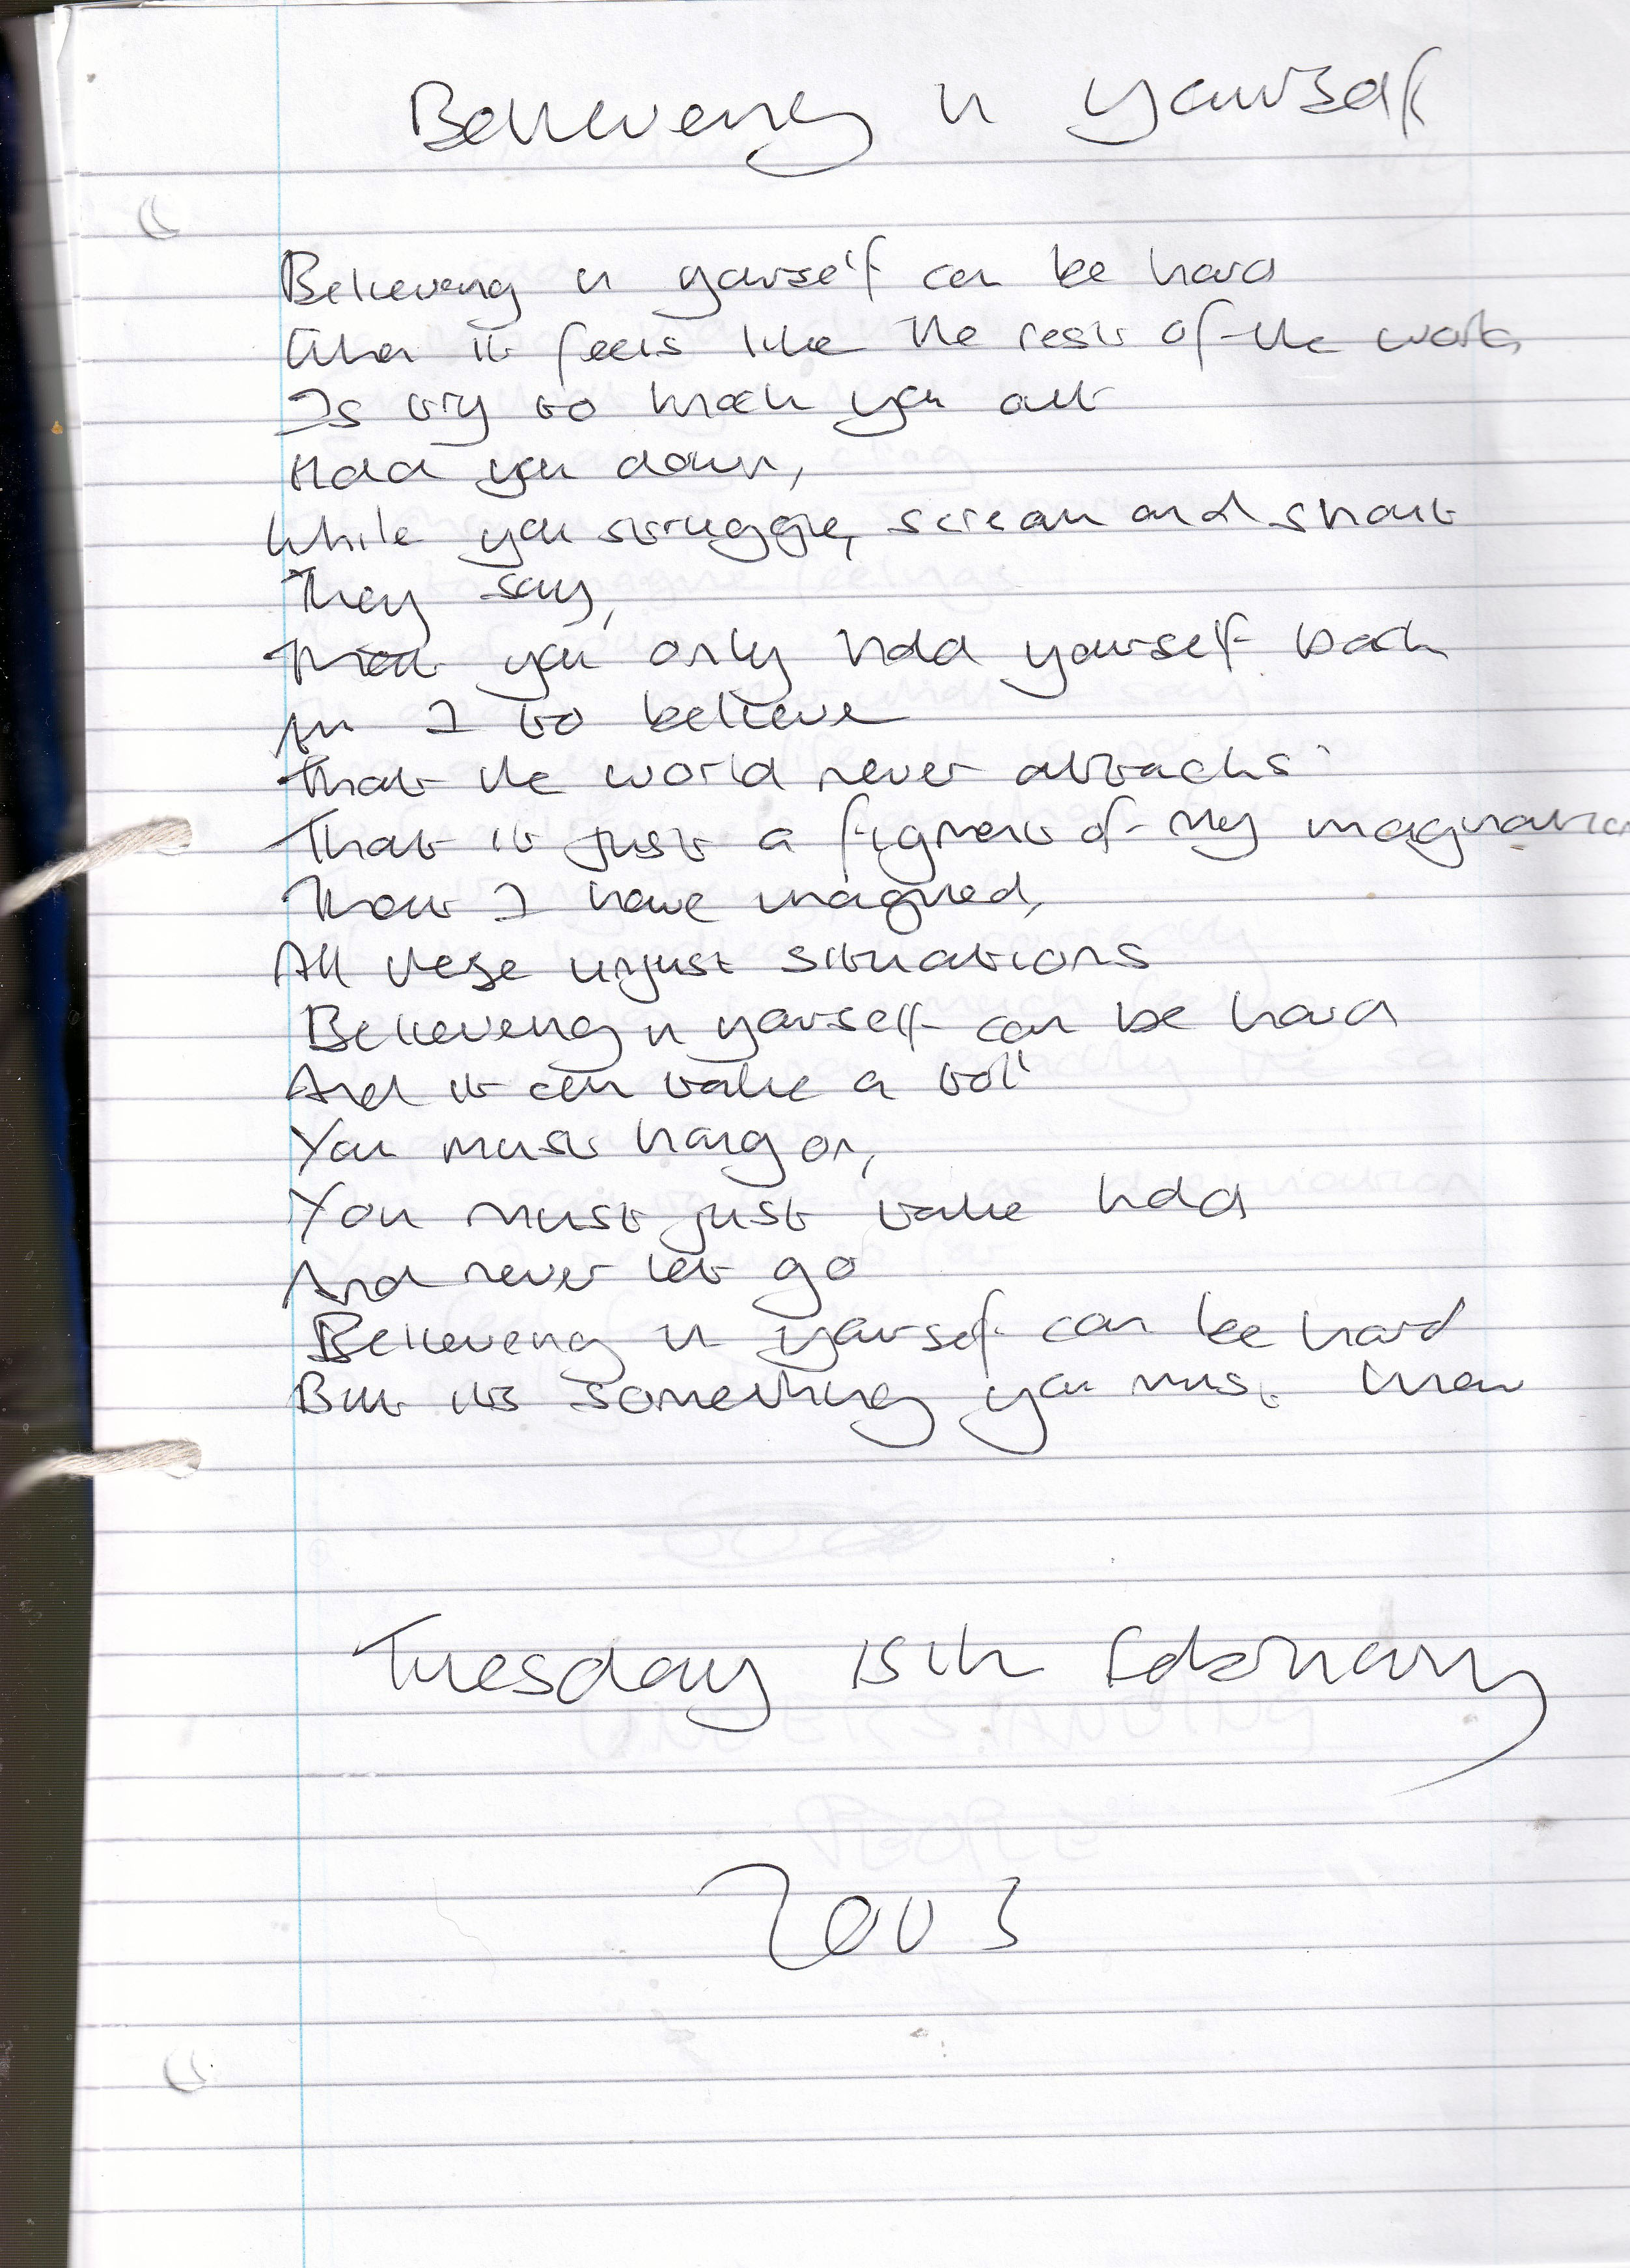 Believeing in yourself
Believeing in yourself can be hard
When it feels like the rest of the world,
Is try to knock you out
Hold you down,
While you struggle, scream and shout
They say,
That you only hold yourself back
Am I to believe
That the world never attacks
That it just a figment of my imagination
That I have imagined,
All these unjust situations
Believeing in yourself can be hard
And it can take a toll
You must hang on,
You must just take hold
And never let go
Believeing in yourself can be hard
But its something you must know
Tuesday 15th February
2003